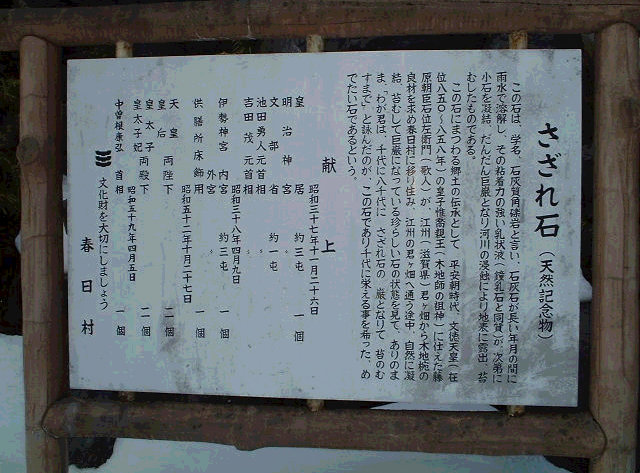 さざれ石（天然記念物）
この石は、学名、石灰質角礫岩と言い、石灰石が長い年月の間に
雨水で溶解し、その粘着力の強い乳状液（鐘乳石と同質）が次第に
小石を凝結、だんだん巨巌となり河川の浸蝕により地表に露出、苔
むしたものである。
この石にまつわる郷土の伝承として、平安朝時代、文徳天皇（在
位八五〇〜八五八年）の皇子惟喬親王（木地師の祖神）に仕えた藤
原朝臣石位左衛門（歌人）が、江州（滋賀県）君ヶ畑から木地椀の
良材を求め春日村に移り住み、江州の君ヶ畑へ通う途中、自然に凝
結、苔むして巨巌になっている珍らしい石の状態を見て、ありのま
ま、「わが君は、千代に八千代に さざれ石の 巌となりて 苔のむ
すまで」と詠んだのが、この石であり千代に栄える事を希った、め
でたい石であるという。
献 上
昭和三十七年十一月二十六日
皇 居 約三屯 一個
明治神宮
文部省 約一屯
池田勇人元首相
吉田茂元首相
昭和三十八年四月九日
伊勢神宮 内宮 約三屯 一個
外宮
供膳所床飾用 一個
昭和五十二年十月二十七日
天皇 皇后 両陛下 二個
皇太子 皇太子妃 両殿下 二個
昭和五十九年四月五日
中曽根康弘 首相 一個
文化財を大切にしましょう
春日村